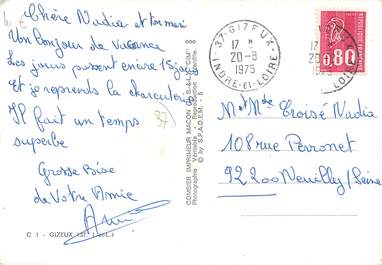 Chère Nadia et ton mari
Un bonjour de vacances
Les jours passent encore 15 jours
Et je reprends la charcuterie
Il fait un temps
superbe
Grosse Bise
de Votre Amie
37
COMBIER IMPRIMEUR MACON "CIM"
Photographie Véritable - Reproduction Interdite
© by S.P.A.D.E.M. - 5
C 1 - GIZEUX (37 I.-&-L.)
37-GIZEUX
17 H
20-8
1975
INDRE-ET-LOIRE
17 H
20
1975
LOIRE
0,80
Mr et Mme Croisé Nadia
108 rue Perronet
92200 Neuilly/Seine